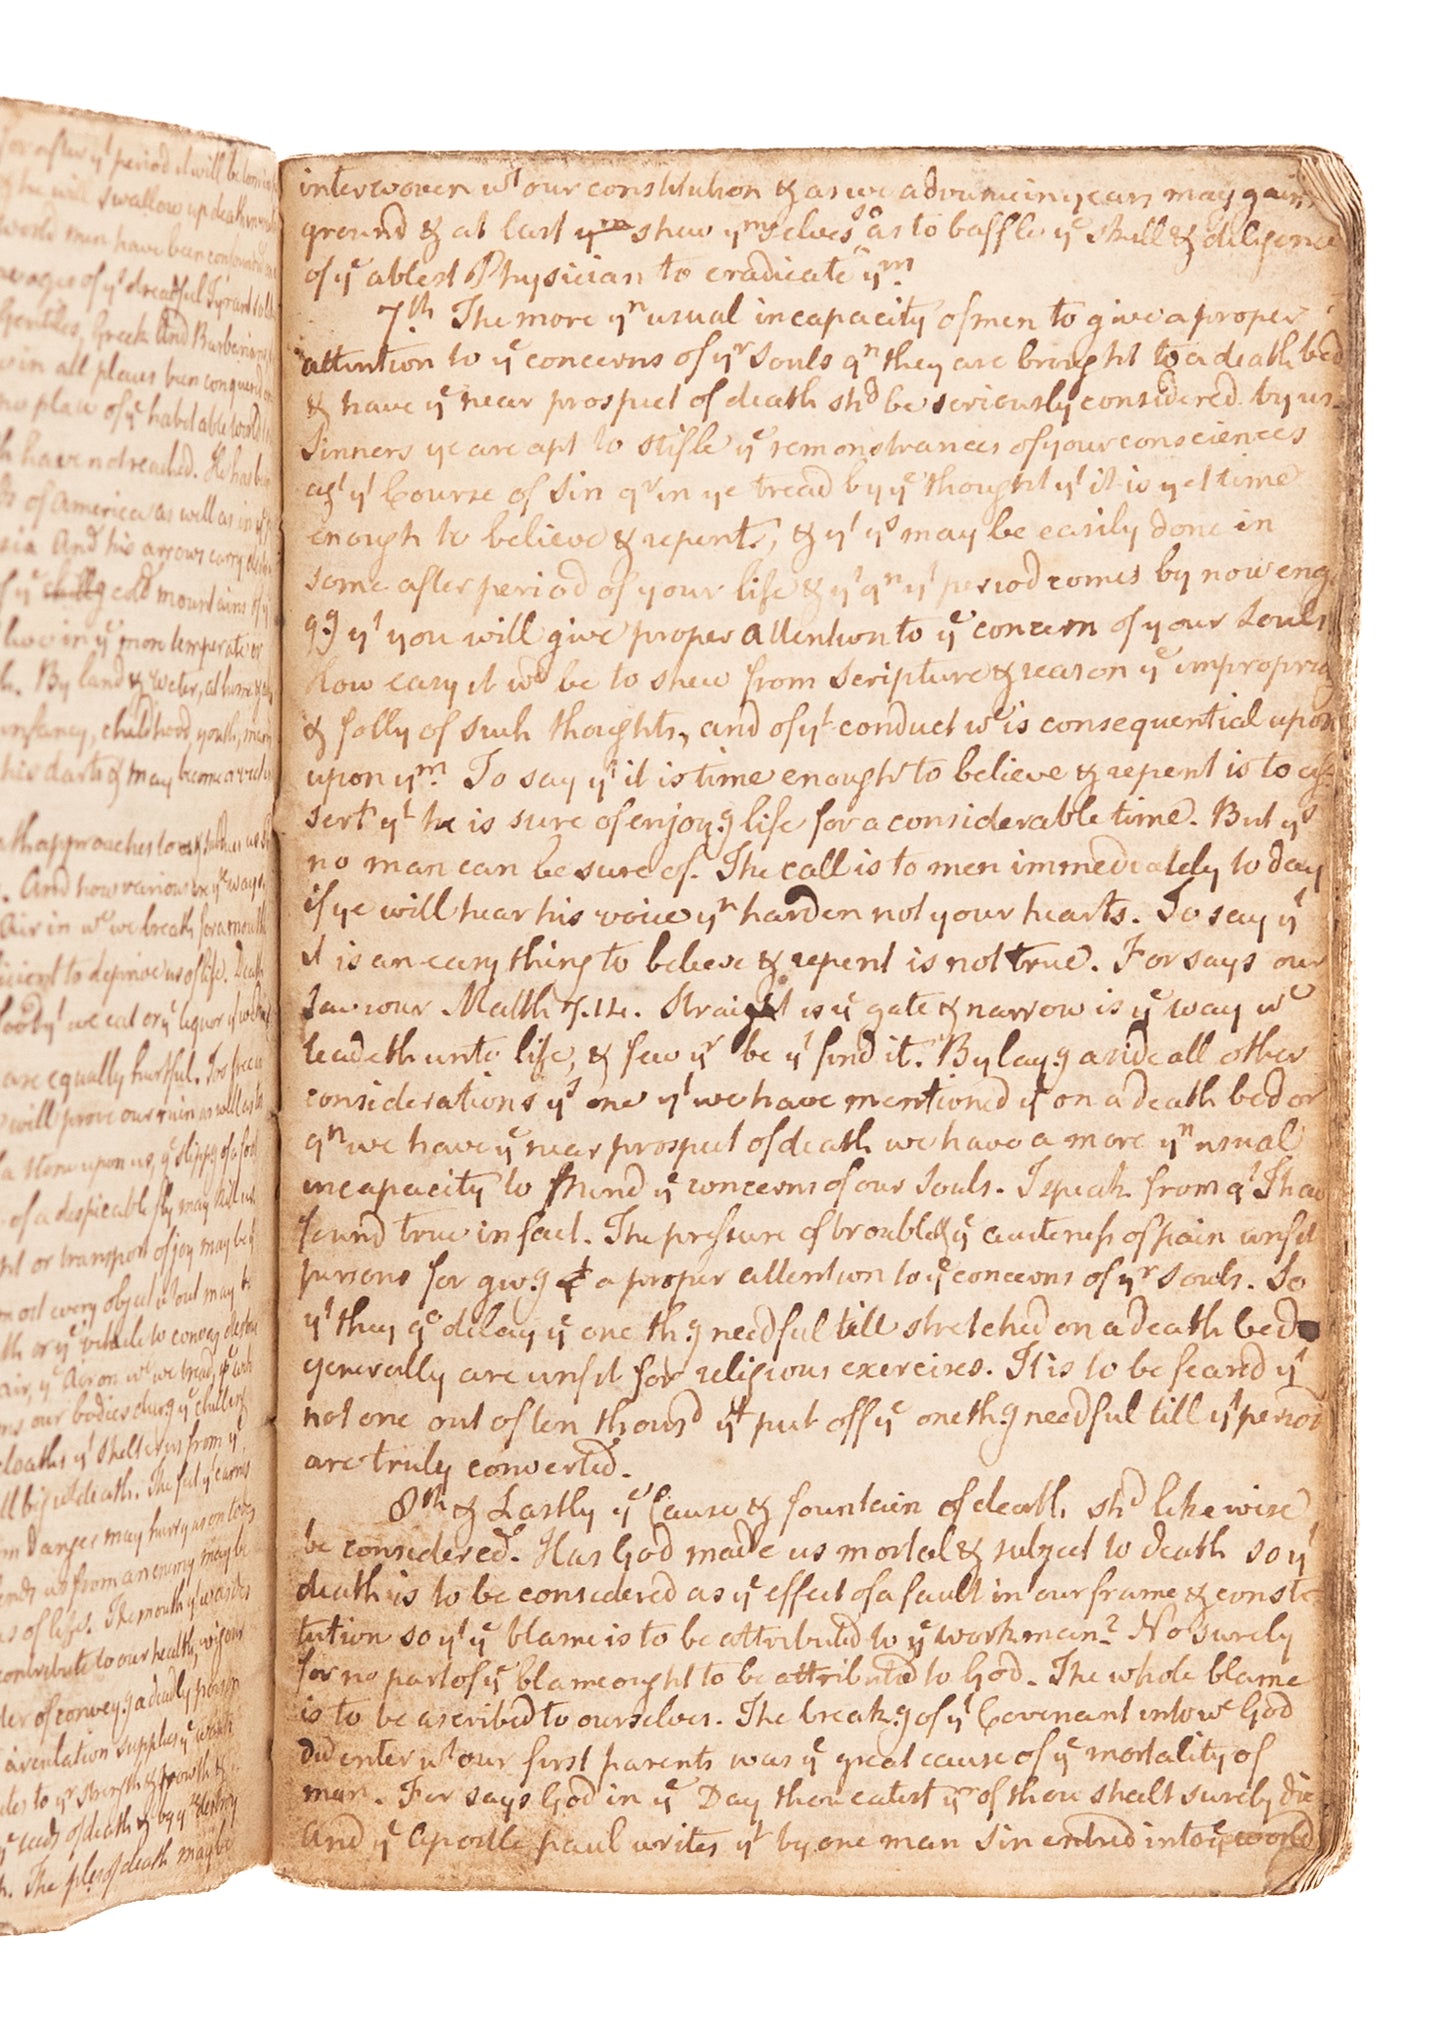 for after yt period it will be
he will swallow up death
world men have been
ages of yt dreadful Tyrant
Gentiles, Greek and Barbarian
in all places been conquered
no place of ye habitable world
have not reached. He has
of America as well as in ye
And his arrows carry
ye chilly cold mountains of
live in ye more temperate
By land & water, at home &
infancy, childhood, youth,
his darts & may become a
approaches to
And how various are ye ways
Air in wc we breath for a mouth
to deprive us of life. Death
yt we eat or ye liquor yt we
are equally hurtful. Too
will prove our ruin as well as
a stone upon us, ye slippg of a foot
of a despicable fly may kill us
or transport of joy may be
most every object wtout may be
or ye vehicle to convey
air, ye wc we tread, ye
our bodies durg ye
cloaths yt shelter us from ye
big wt death. The feet yt carries
danger may hurry us on to
us from an enemy may be
of life. The mouth yt
contribute to our health, vigour
of conveyg a deadly poison
circulation supplies ye
to yr strength & growth &
ye seeds of death & by
The of death may be
interwoven wt our constitution & as we advance in years may gain
ground & at last ym shew ymselves so as to baffle ye skill & diligence
of ye ablest Physician to eradicate ym.
7th. The more yn usual incapacity of men to give a proper
attention to ye concerns of yr souls qn they are brought to a death bed
& have ye near prospect of death shd be seriously considered by us.
Sinners ye are apt to stifle ye remonstrances of your consciences
agt yt Course of sin qrin ye tread by ye thought yt it is yet time
enough to believe & repent, & yt ys may be easily done in
some after period of your life & yt qn yt period comes by now eng
gg yt you will give proper attention to ye concern of your souls
how easy it wd be to shew from scripture & reason ye impropriety
& folly of such thoughts, and of yt conduct wc is consequential upon
upon ym. To say yt it is time enough to believe & repent is to as-
sert yt he is sure of enjoyg life for a considerable time. But ys
no man can be sure of. The call is to men immediately to day
if ye will hear his voice yn harden not your hearts. To say yt
it is an easy thing to believe & repent is not true. For says our
Saviour Matth 7.14. Straight is ye gate & narrow is ye way wc
leadeth unto life, & few yr be yt find it. By layg aside all other
considerations ys one yt we have mentioned yt on a death bed or
qn we have ye near prospect of death we have a more yn usual
incapacity to mind ye concerns of our souls. I speak from qt I have
found true in fact. The pressure of trouble & ye accuteness of pain unfit
persons for givg a proper attention to ye concerns of yr souls. So
yt they qo delay ye one thg needful till stretched on a death bed
generally are unfit for religious exercises. It is to be feared yt
not one out of ten thousd yt put off ye one thg needful till yt period
are truly converted.
8th & Lastly ye Cause & fountain of death shd likewise
be considered. Has God made us mortal & subject to death so yt
death is to be considered as ye effect of a fault in our frame & consti-
tution so yt ye blame is to be attributed to ye workman? No surely
for no part of ye blame ought to be attributed to God. The whole blame
is to be ascribed to ourselves. The breakg of yt Covenant into wc God
did enter wt our first parents was ye great cause of ye mortality of
man. For says God in ye Day thou eatest yrof thou shalt surely die
And ye Apostle paul writes yt by one man sin entred into ye world